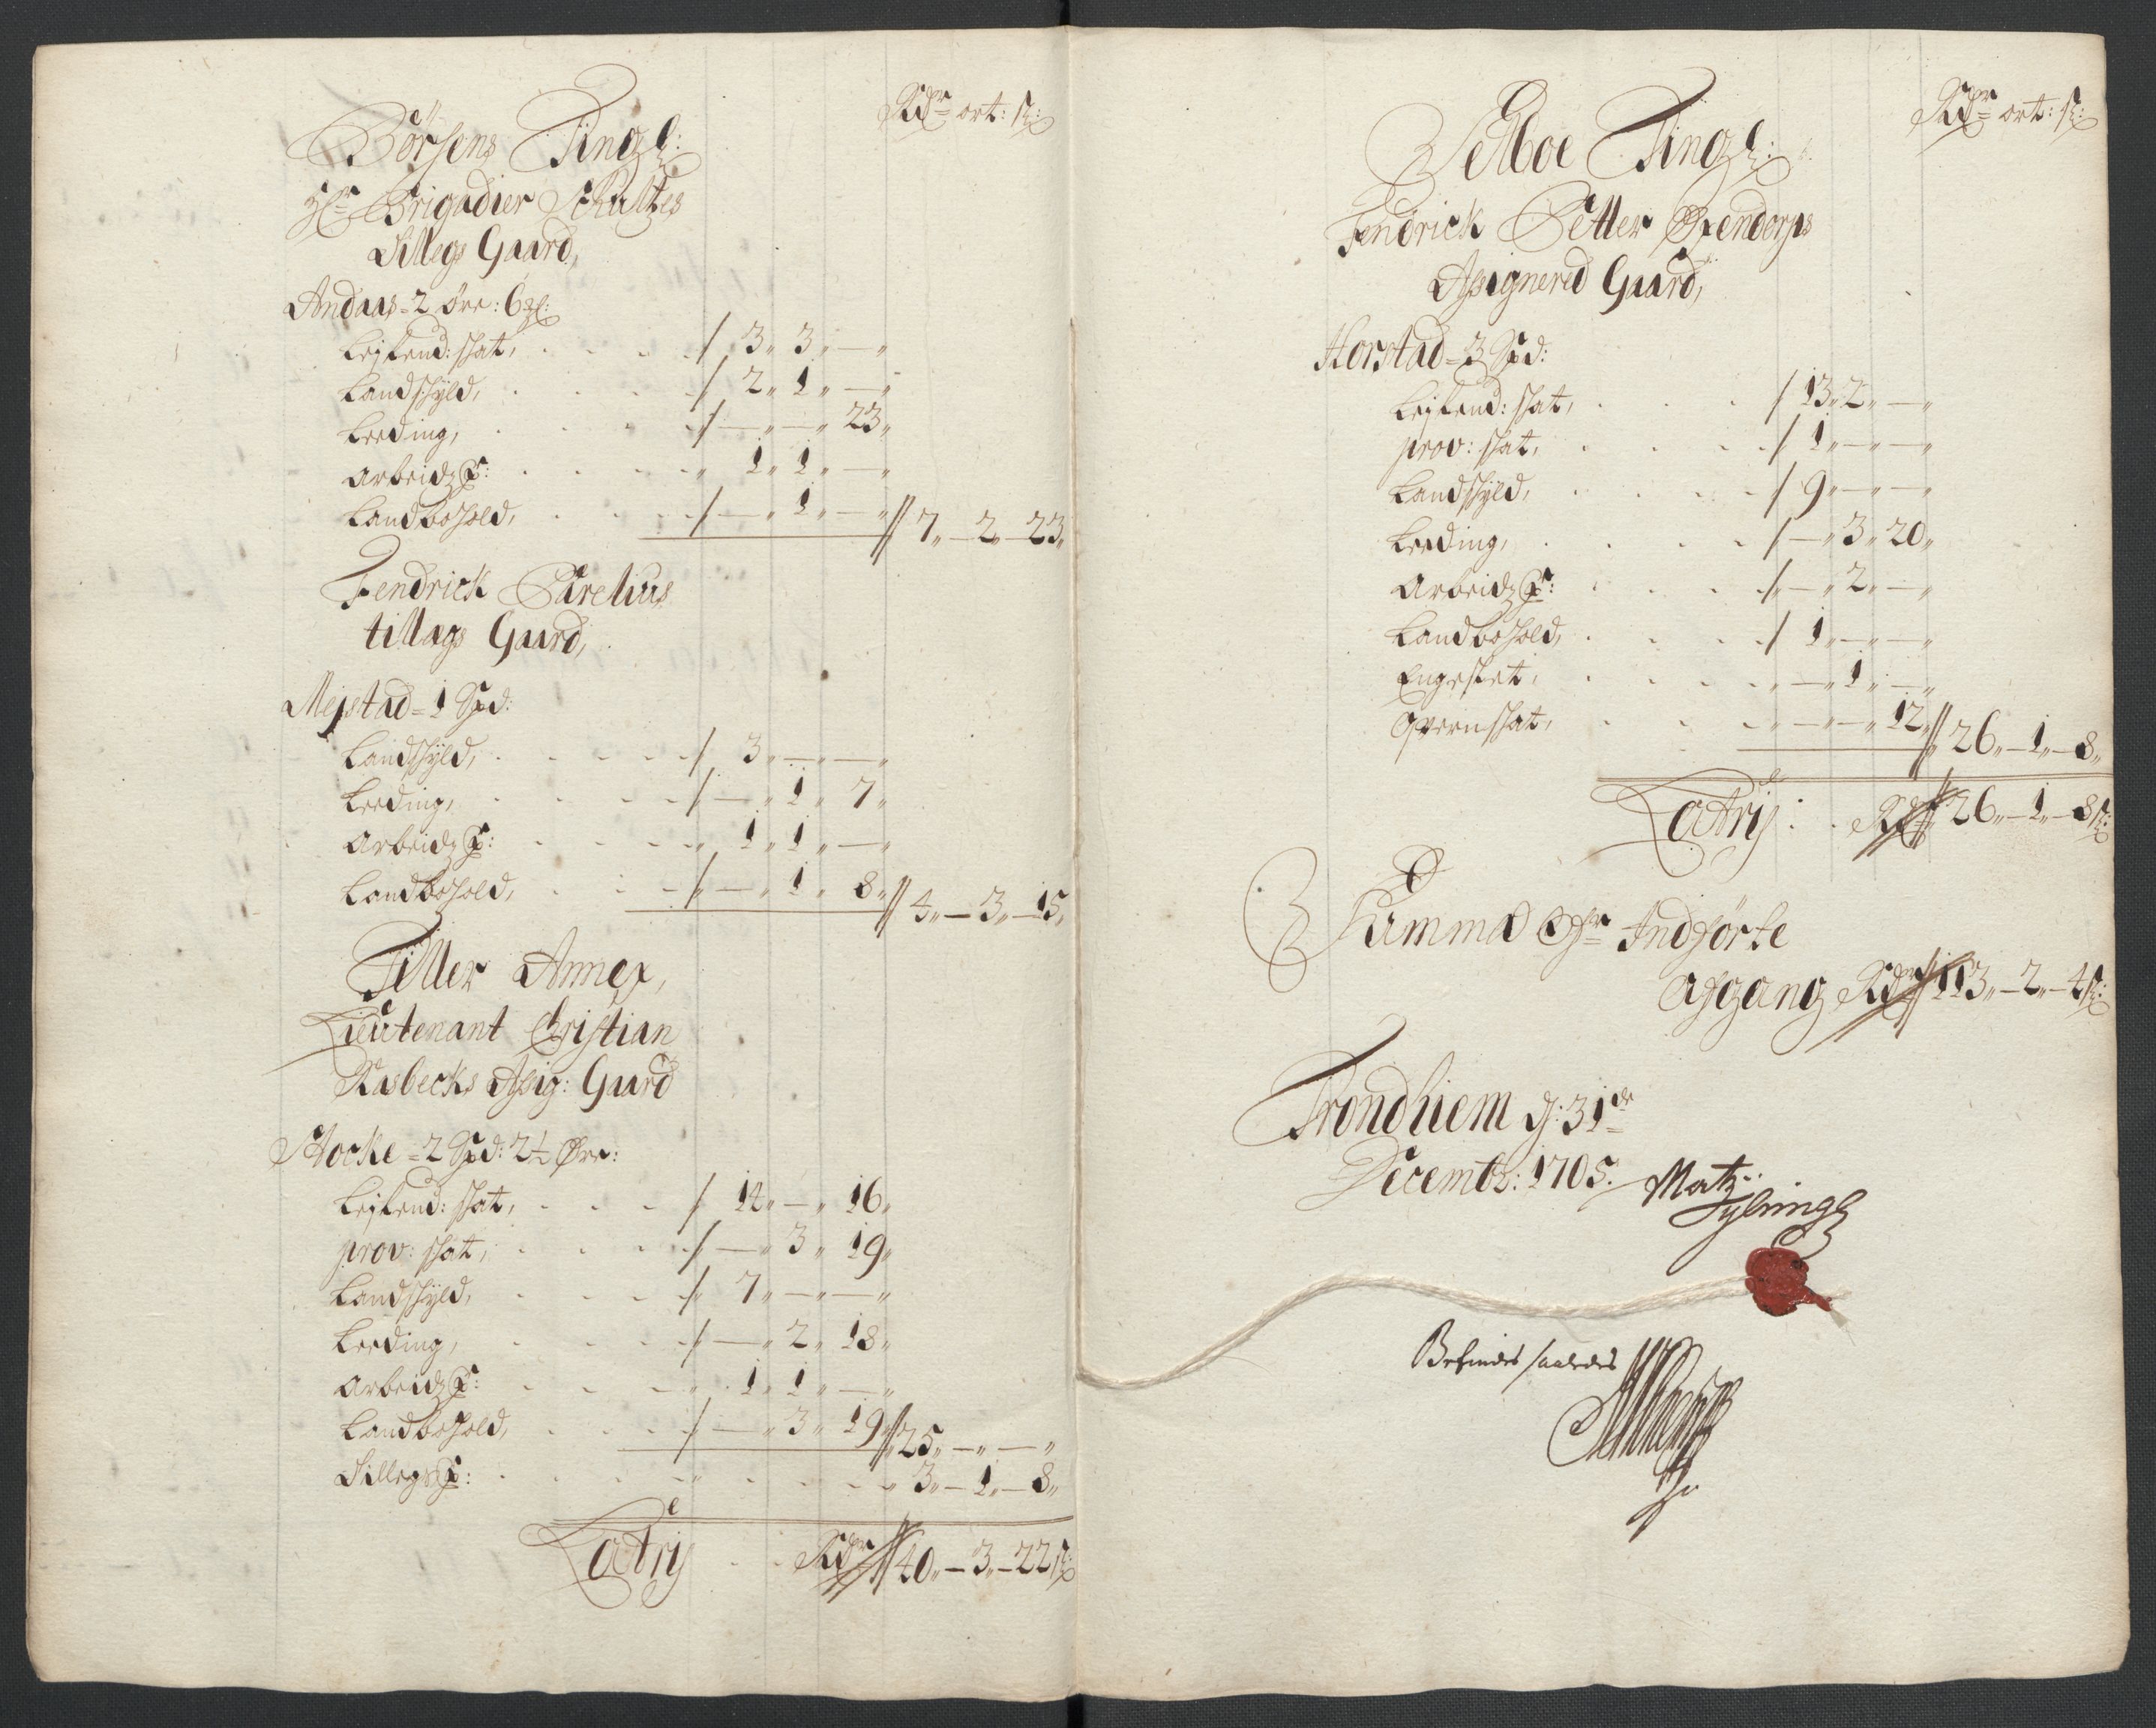 Rdr ort: s:
Börsens Tingl:
Hr Brigadier Schultzes
Tillegs Gaard,
Andaas - 2 öre: 6 gl:
Leylend: skat, 3 " 3 " — "
Landskyld, 2 " 1 " — "
Leeding, — " — " 23 "
Arbeidz P: 1 " 1 " — "
Landbohold, — " 1 " — " 7 " — 2 " — 23 "
Fendrick Parelius
tillags Gaard,
Mejstad - 1 Spd:
Landskyld, 3 " — " — "
Leeding, — " 1 " 7 "
Arbeidz P: 1 " 1 " — "
Landbohold, — " 1 " 8 " 4 " — 3 " — 15 "
Tiller Annex,
Lieutenant Christian
Rasbecks Assig: Gaard
Stocke - 2 Spd: 2½ Øre:
Leylend: skat, 12 " — " 16 "
prov: skat, — " 3 " 19 "
Landskyld, 7 " — " — "
Leeding, — " 2 " 18 "
Arbeidz P: 1 " 1 " — "
Landbohold, — " 3 " 19 " 25 " — " — "
Tillegs P: 3 " — 1 " — 8 "
Latris Rdr 40 " — 3 " — 22 s:
Rdr ort: s:
Selboe Tingl:
Fendrick Petter Øxendorps
Assignered Gaard,
Horstad - 3 Spd:
Leylend: skat, 13 " 2 " — "
prov: skat, 1 " — " — "
Landskyld, 9 " — " — "
Leeding, — " 3 " 20 "
Arbeidz P: — " 2 " — "
Landbohold, 1 " — " — "
Engeslet, — " 1 " — "
Qvernskat, — " — " 12 " 26 " — 1 " — 8 "
Latris: Rdr 26 " — 1 " — 8 s:
Summa Ofr Indförte
Afgang Rdr 113 " — 2 " — 4 s:
Trondhiem d: 31de
Decembr: 1705.
Matz:
Befindes saaledes